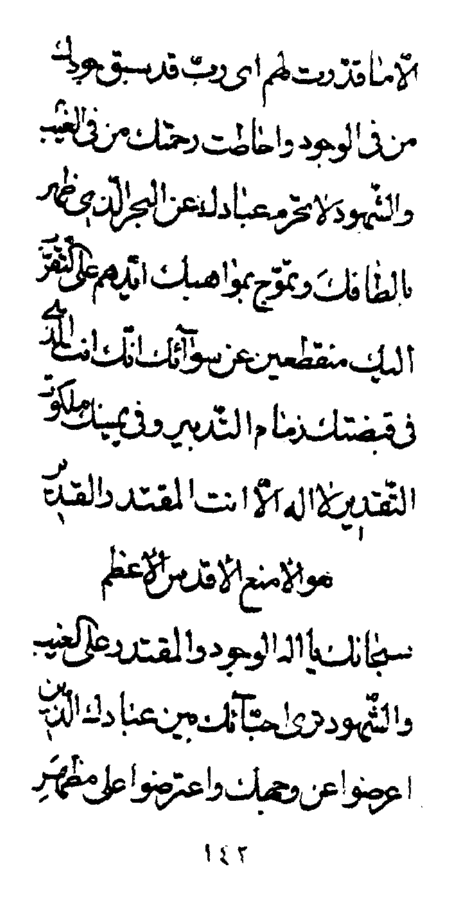 الّا ما قدّرت لهم ای ربّ قد سبق جودك
من فى الوجود واحاطت رحمتك من فى الغيب
والشّهود لا تحرم عبادك عن البحر الّذى ظهر
بالطافك وتموّج بمواهبك ايّدهم على التّقرّب
اليك منقطعين عن سوآئك انّك انت الّذى
فى قبضتك زمام التّدبير وفى يمينك ملكوت
التّقدير لا اله الّا انت المقتدر القدير
هو الامنع الاقدس الاعظم
سبحانك يا اله الوجود والمقتدر على الغيب
والشّهود ترى احبّآئك بين عبادك الّذين
اعرضوا عن وجهك واعترضوا على مظهر
١٤٢